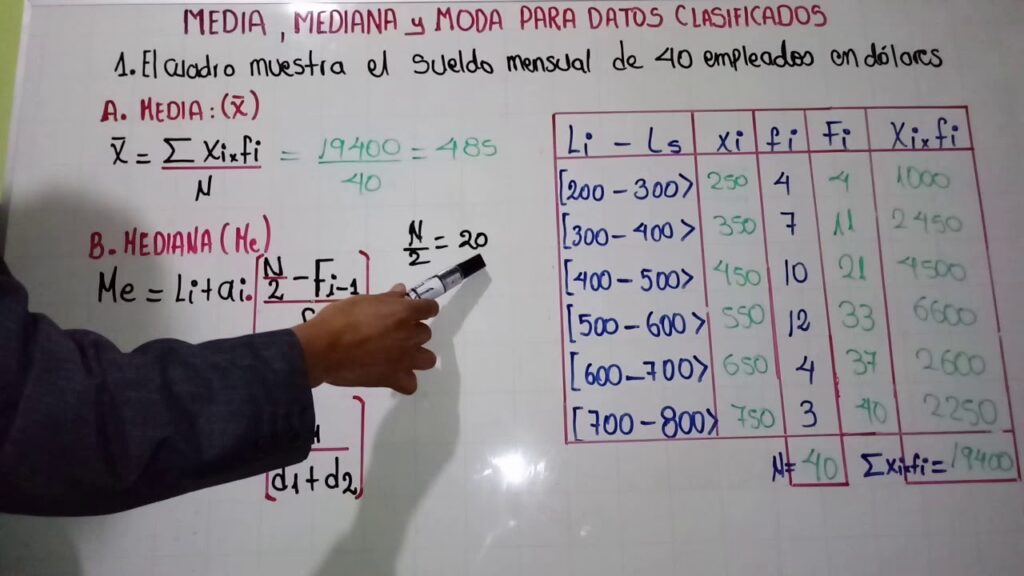 MEDIA, MEDIANA y MODA PARA DATOS CLASIFICADOS
1. El cuadro muestra el sueldo mensual de 40 empleados en dólares
A. MEDIA: (x̄)
x̄ = Σ Xi×fi / N = 19400 / 40 = 485
B. MEDIANA (Me)
N/2 = 20
Me = Li + ai. [N/2 - Fi-1
d1 + d2]
Li - Ls Xi fi Fi Xi×fi
[200 - 300> 250 4 4 1000
[300 - 400> 350 7 11 2450
[400 - 500> 450 10 21 4500
[500 - 600> 550 12 33 6600
[600 - 700> 650 4 37 2600
[700 - 800> 750 3 40 2250
N= 40 Σxi×fi = 19400